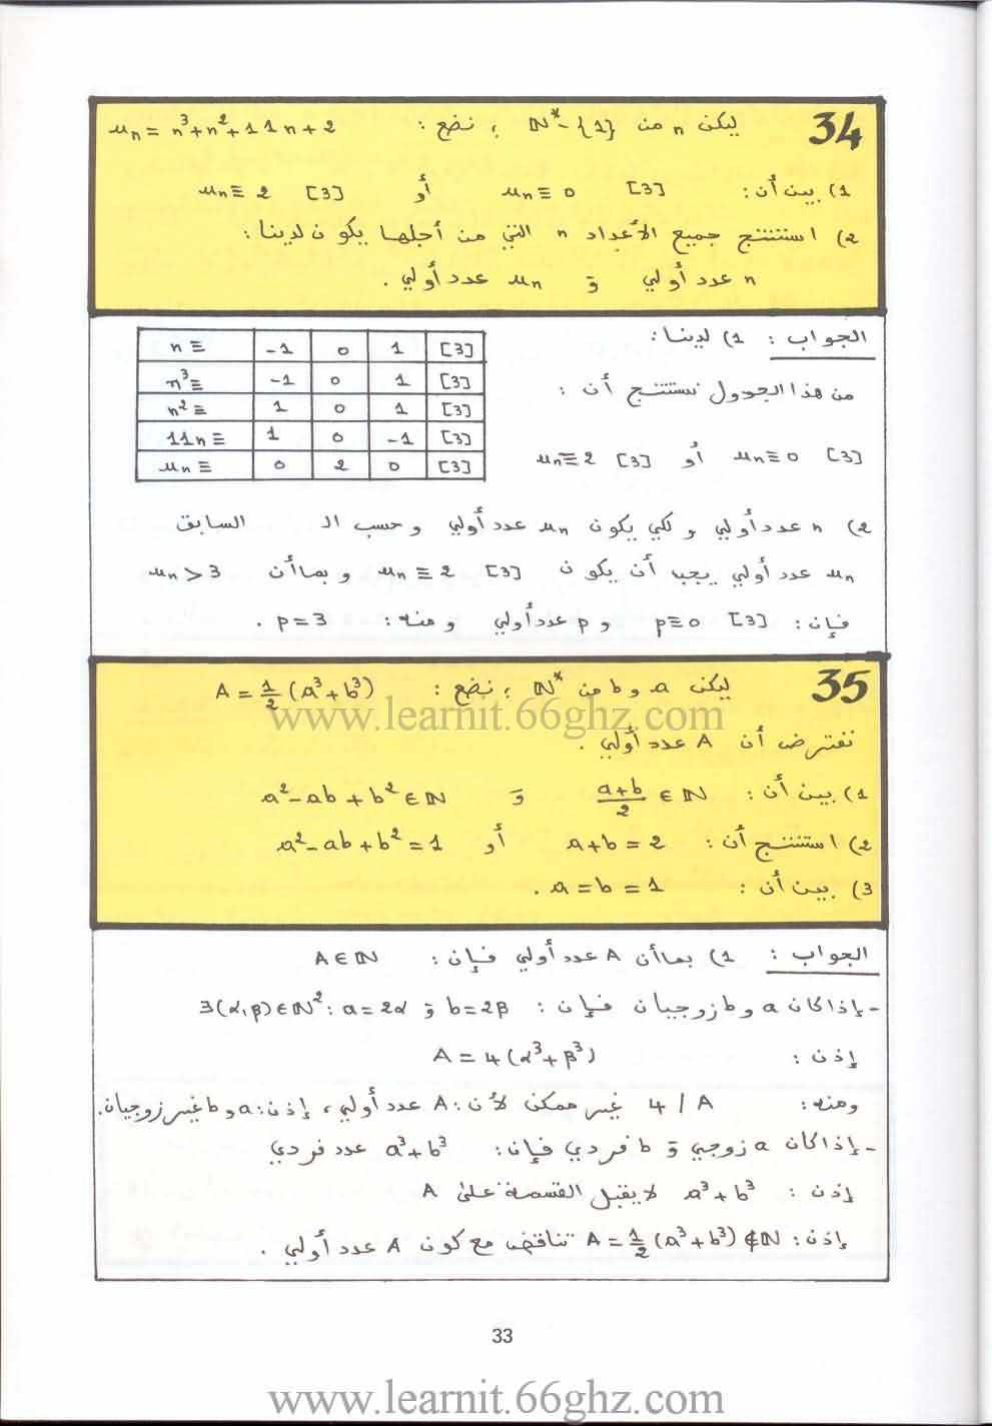 34 ليكن n من ℕ*-{1} ؛ نضع : uₙ = n³+n²+11n+2
1) بين أن: uₙ ≡ 0 [3] أو uₙ ≡ 2 [3]
2) استنتج جميع الأعداد n التي من أجلها يكون لدينا:
n عدد أولي و uₙ عدد أولي .
الجواب : 1) لدينا:
n ≡ -1 0 1 [3]
n³ ≡ -1 0 1 [3]
n² ≡ 1 0 1 [3]
11n ≡ 1 0 -1 [3]
uₙ ≡ 0 2 0 [3]
من هذا الجدول نستنتج أن :
uₙ ≡ 2 [3] أو uₙ ≡ 0 [3]
2) n عدد أولي و لكي يكون uₙ عدد أولي و حسب الـ السابق
uₙ عدد أولي يجب أن يكون uₙ ≡ 2 [3] و بما أن uₙ > 3
فإن : p ≡ 0 [3] و p عدد أولي و منه : p = 3 .
35 ليكن a و b من ℕ* ؛ نضع : A = ½ (a³+b³)
www.learnit.66ghz.com
نفترض أن A عدد أولي .
1) بين أن : (a+b)/2 ∈ ℕ و a²-ab+b² ∈ ℕ
2) استنتج أن : a+b = 2 أو a²-ab+b² = 1
3) بين أن : a = b = 1 .
الجواب : 1) بما أن A عدد أولي فإن : A ∈ ℕ
- إذا كان a و b زوجيان فإن : ∃(α,β) ∈ ℕ² : a = 2α و b = 2β
إذن : A = 4(α³+β³)
ومنه : 4 / A غير ممكن لأن : A عدد أولي ، إذن : a و b غير زوجيان.
- إذا كان a زوجي و b فردي فإن : a³+b³ عدد فردي
إذن : a³+b³ لا يقبل القسمة على A
إذن : A = ½ (a³+b³) ∉ ℕ تناقض مع كون A عدد أولي .
33
www.learnit.66ghz.com